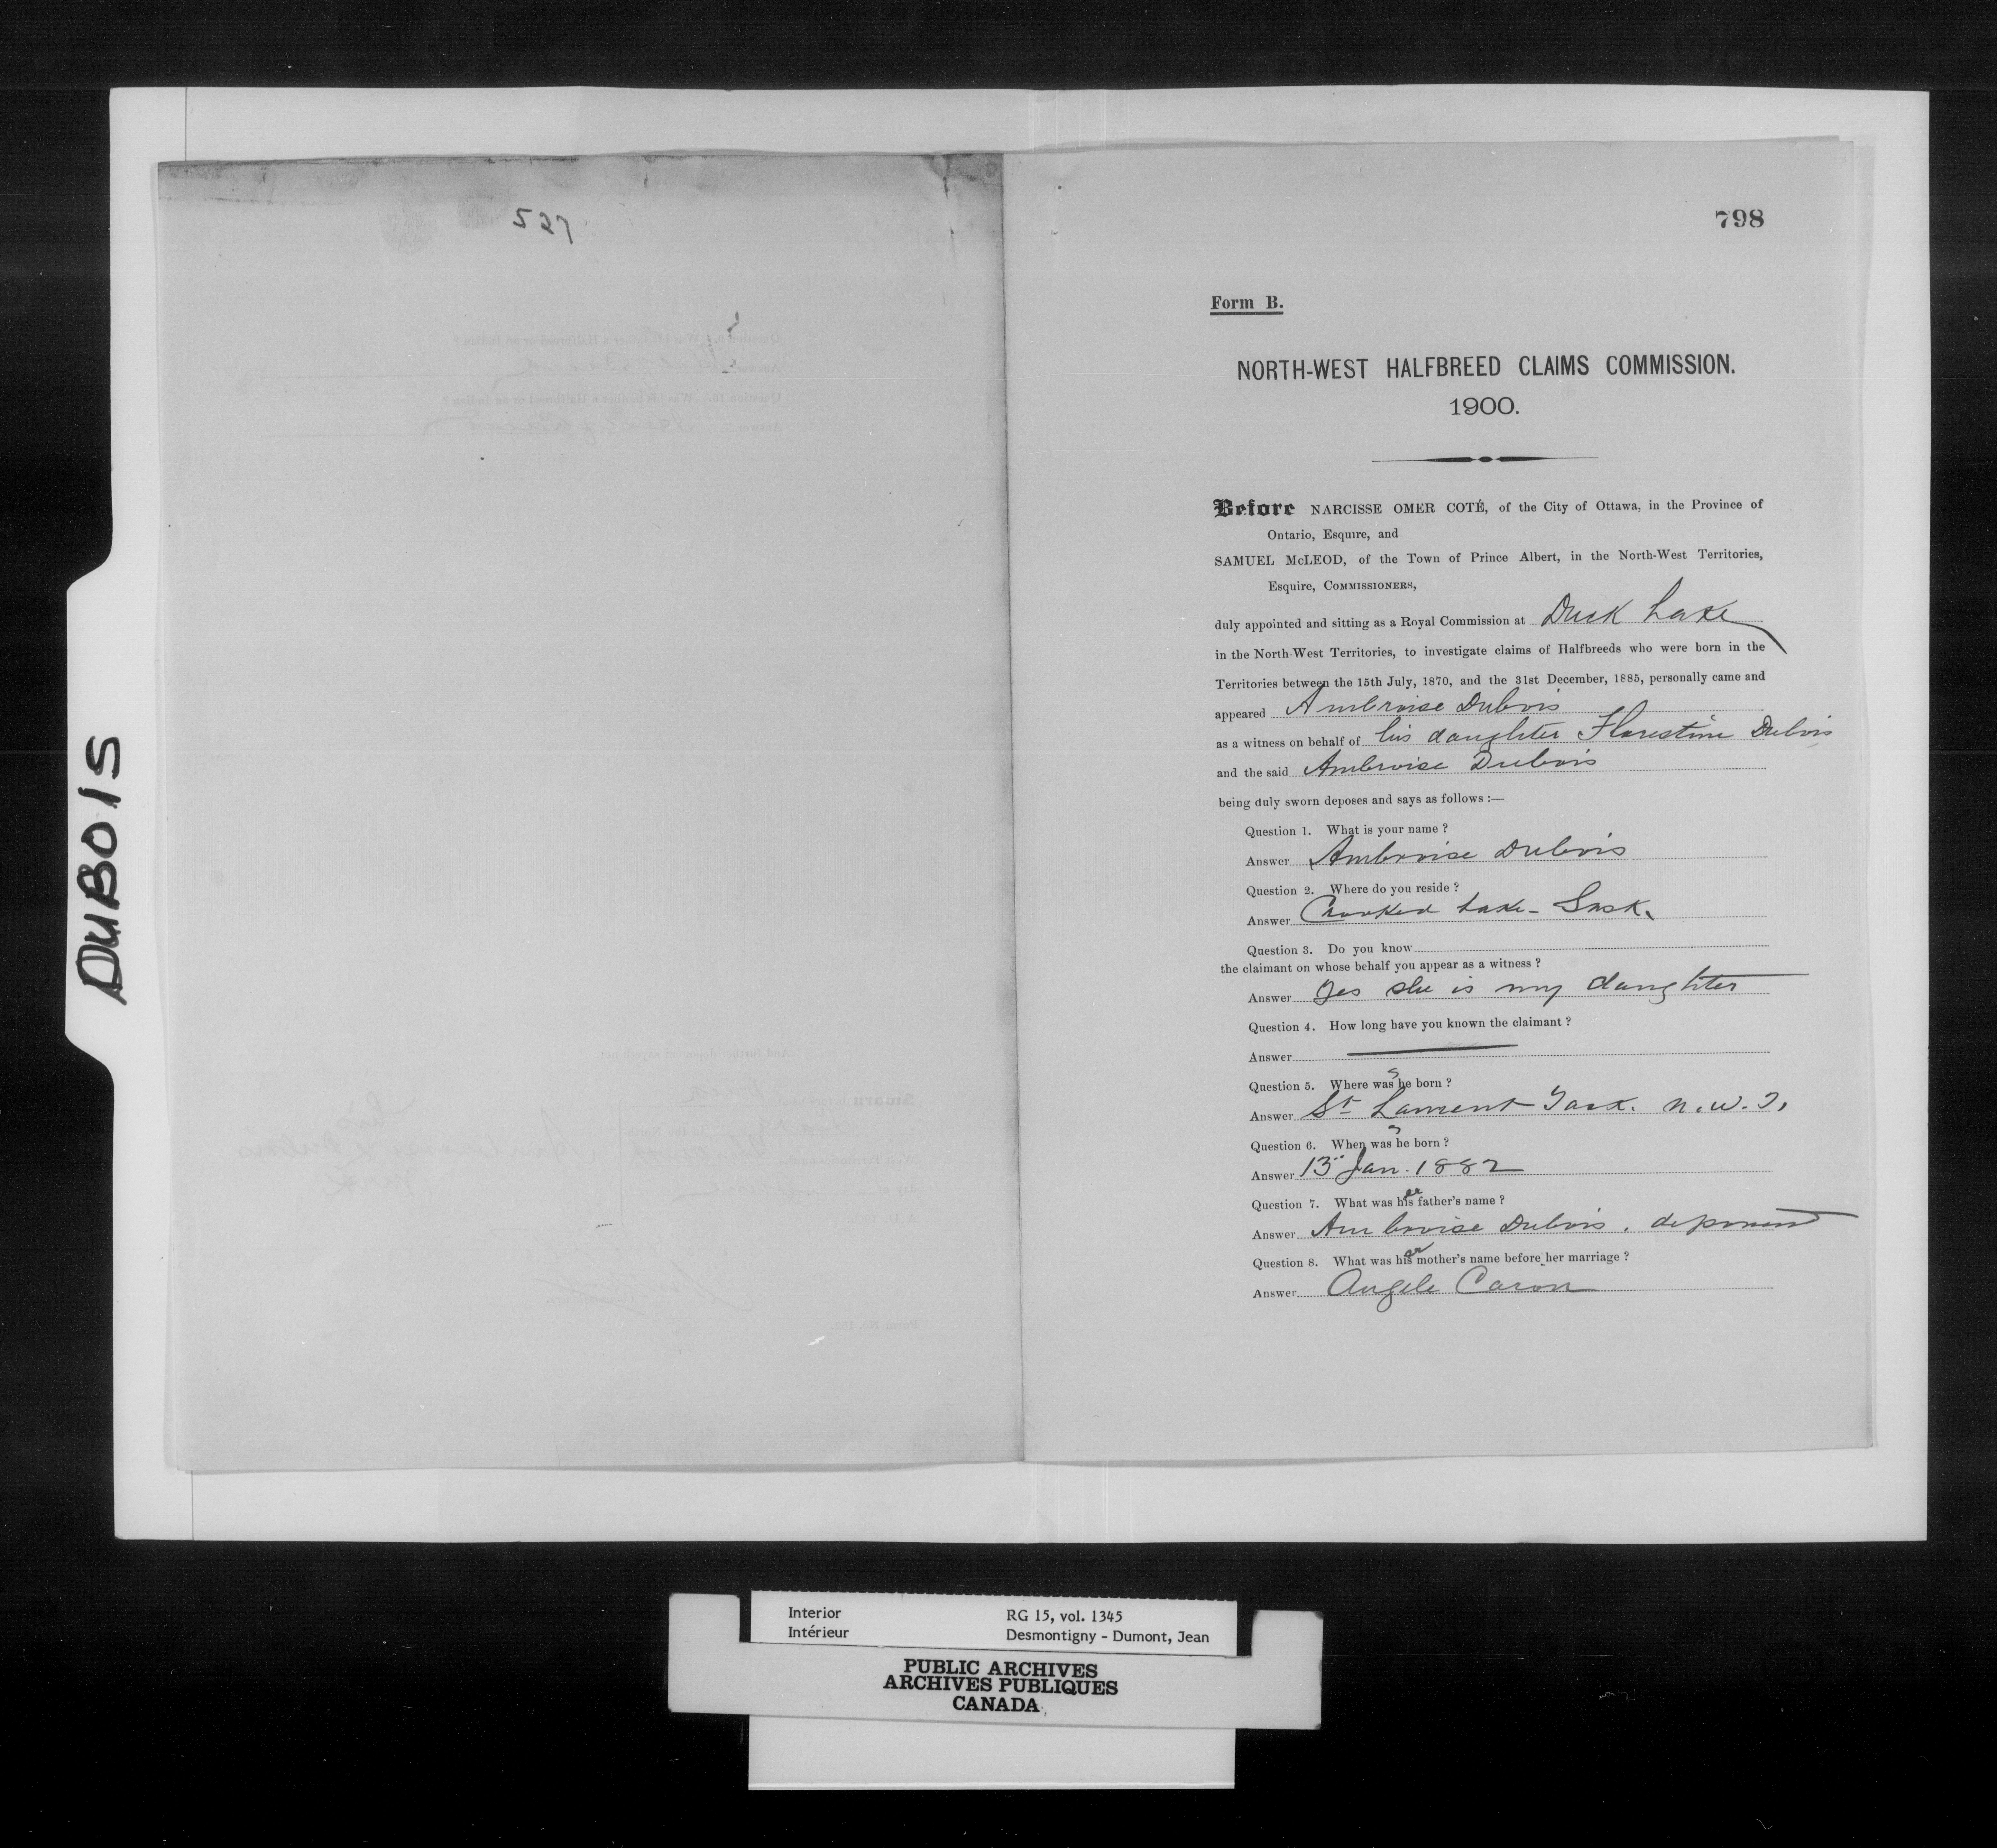 527
DUBOIS
798
Form B.
NORTH-WEST HALFBREED CLAIMS COMMISSION.
1900.
Before NARCISSE OMER COTÉ, of the City of Ottawa, in the Province of
Ontario, Esquire, and
SAMUEL McLEOD, of the Town of Prince Albert, in the North-West Territories,
Esquire, COMMISSIONERS,
duly appointed and sitting as a Royal Commission at Duck Lake
in the North-West Territories, to investigate claims of Halfbreeds who were born in the
Territories between the 15th July, 1870, and the 31st December, 1885, personally came and
appeared Ambroise Dubois
as a witness on behalf of his daughter Florestine Dubois
and the said Ambroise Dubois
being duly sworn deposes and says as follows :—
Question 1. What is your name ?
Answer Ambroise Dubois
Question 2. Where do you reside ?
Answer Crooked Lake - Sask.
Question 3. Do you know
the claimant on whose behalf you appear as a witness ?
Answer Yes she is my daughter
Question 4. How long have you known the claimant ?
Answer
Question 5. Where was she born ?
Answer St Laurent Sask. N.W.T.
Question 6. When was she born ?
Answer 13" Jan. 1882
Question 7. What was her father's name ?
Answer Ambroise Dubois. deponent
Question 8. What was her mother's name before her marriage ?
Answer Angele Caron
Interior RG 15, vol. 1345
Intérieur Desmontigny - Dumont, Jean
PUBLIC ARCHIVES
ARCHIVES PUBLIQUES
CANADA